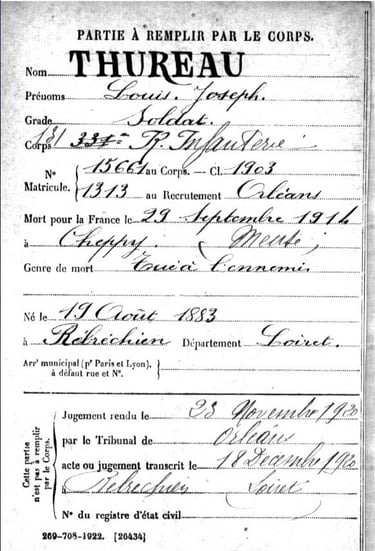 PARTIE À REMPLIR PAR LE CORPS.
Nom THUREAU
Prénoms Louis. Joseph.
Grade Soldat.
Corps 131 331e R. Infanterie
N° 15661 au Corps. — Cl. 1903
Matricule. 1313 au Recrutement Orléans
Mort pour la France le 29 Septembre 1914
à Cheppy. (Meuse)
Genre de mort Tué à l'ennemi
Né le 19 Août 1883
à Rébréchien Département Loiret.
Arrt municipal (pr Paris et Lyon),
à défaut rue et N°.
Cette partie
n'est pas à remplir
par le Corps.
Jugement rendu le 23 Novembre 1920
par le Tribunal de Orléans
acte ou jugement transcrit le 18 Décembre 1920
à Rébréchien Loiret
N° du registre d'état civil
269-708-1922. [26434]